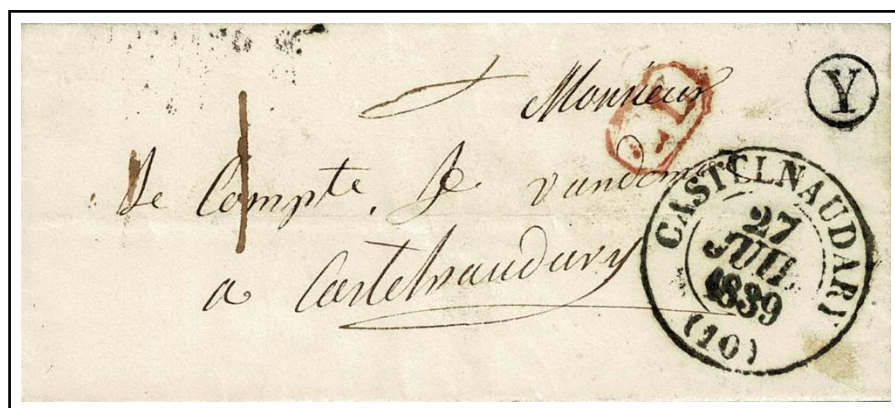 Monsieur
Le Compte. De vandom
a Castelnaudary
Y
CASTELNAUDARY
27
JUIL
1839
(10)